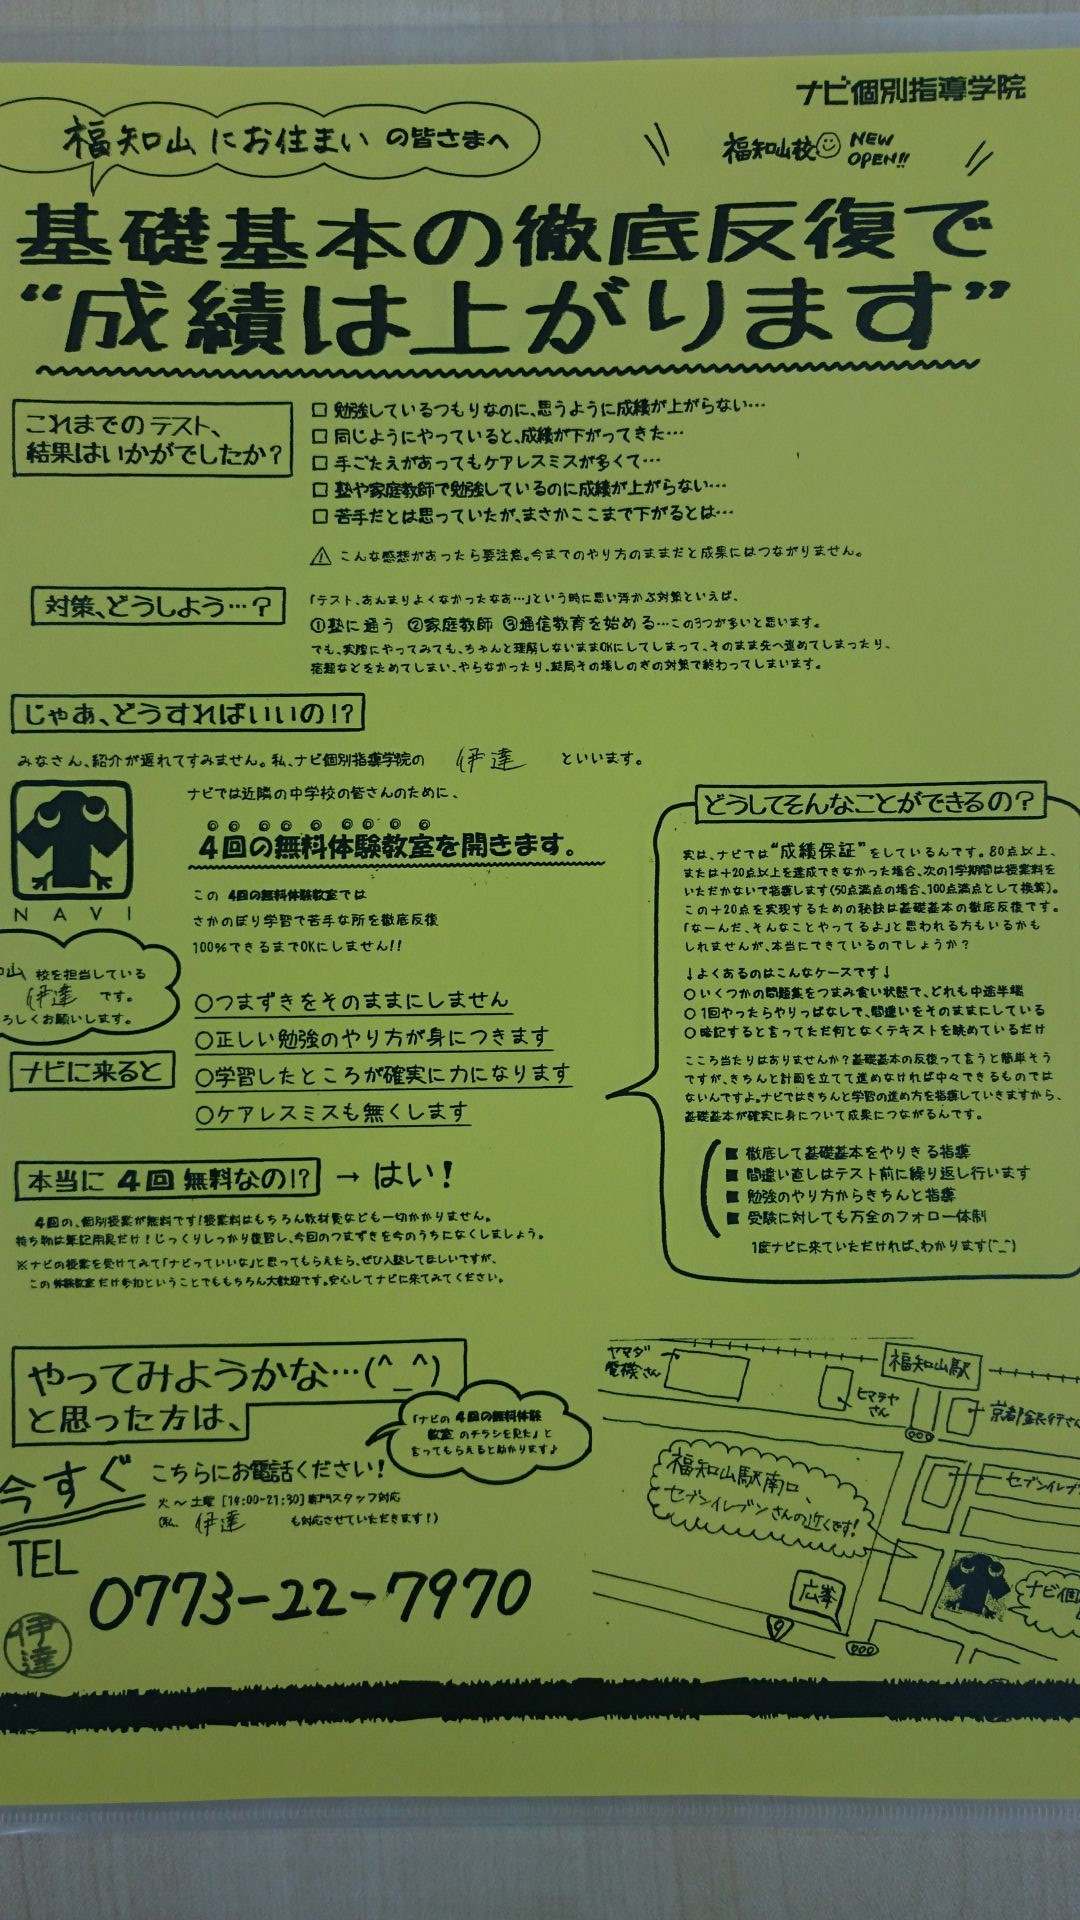 ナビ個別指導学院
福知山にお住まいの皆さまへ
福知山校 NEW OPEN!!
基礎基本の徹底反復で
“成績は上がります”
これまでのテスト、
結果はいかがでしたか?
□ 勉強しているつもりなのに、思うように成績が上がらない…
□ 同じようにやっていると、成績が下がってきた…
□ 手ごたえがあってもケアレスミスが多くて…
□ 塾や家庭教師で勉強しているのに成績が上がらない…
□ 苦手だとは思っていたが、まさかここまで下がるとは…
⚠ こんな感想があったら要注意。今までのやり方のままだと成果にはつながりません。
対策、どうしよう…?
「テスト、あんまりよくなかったなあ…」という時に思い浮かぶ対策といえば、
①塾に通う ②家庭教師 ③通信教育を始める…この3つが多いと思います。
でも、実際にやってみても、ちゃんと理解しないままOKにしてしまって、そのまま先へ進めてしまったり、
宿題などをためてしまい、やらなかったり、結局その場しのぎの対策で終わってしまいます。
じゃあ、どうすればいいの!?
みなさん、紹介が遅れてすみません。私、ナビ個別指導学院の 伊達 といいます。
ナビでは近隣の中学校の皆さんのために、
4回の無料体験教室を開きます。
NAVI
この 4回の無料体験教室では
さかのぼり学習で苦手な所を徹底反復
100%できるまでOKにしません!!
山 校を担当している
伊達 です。
ろしくお願いします。
ナビに来ると
○つまずきをそのままにしません
○正しい勉強のやり方が身につきます
○学習したところが確実に力になります
○ケアレスミスも無くします
どうしてそんなことができるの?
実は、ナビでは“成績保証”をしているんです。80点以上、
または+20点以上を達成できなかった場合、次の1学期間は授業料を
いただかないで指導します(50点満点の場合、100点満点として換算)。
この+20点を実現するための秘訣は基礎基本の徹底反復です。
「なーんだ、そんなことやってるよ」と思われる方もいるかも
しれませんが、本当にできているのでしょうか?
↓よくあるのはこんなケースです↓
○ いくつかの問題集をつまみ食い状態で、どれも中途半端
○ 1回やったらやりっぱなしで、間違いをそのままにしている
○ 暗記すると言ってただ何となくテキストを眺めているだけ
こころ当たりはありませんか?基礎基本の反復って言うと簡単そう
ですが、きちんと計画を立てて進めなければ中々できるものでは
ないんですよ。ナビではきちんと学習の進め方を指導していきますから、
基礎基本が確実に身について成果につながるんです。
■ 徹底して基礎基本をやりきる指導
■ 間違い直しはテスト前に繰り返し行います
■ 勉強のやり方からきちんと指導
■ 受験に対しても万全のフォロー体制
1度ナビに来ていただければ、わかります(^_^)
本当に 4回 無料なの!? → はい!
4回の、個別授業が無料です!授業料はもちろん教材費なども一切かかりません。
持ち物は筆記用具だけ!じっくりしっかり復習し、今回のつまずきを今のうちになくしましょう。
※ナビの授業を受けてみて「ナビっていいな」と思ってもらえたら、ぜひ入塾してほしいですが、
この体験教室だけ参加ということでももちろん大歓迎です。安心してナビに来てみてください。
やってみようかな…(^_^)
と思った方は、
「ナビの 4回の無料体験
教室 のチラシを見た」と
言ってもらえると助かります♪
今すぐ こちらにお電話ください!
火~土曜 [14:00-21:30] 専門スタッフ対応
(私、 伊達 も対応させていただきます!)
TEL
0773-22-7970
伊達
ヤマダ
電機さん
福知山駅
ヒマラヤ
さん
京都銀行さん
セブンイレブ
福知山駅南口、
セブンイレブンさんの近くです!
広峯
9
ナビ個